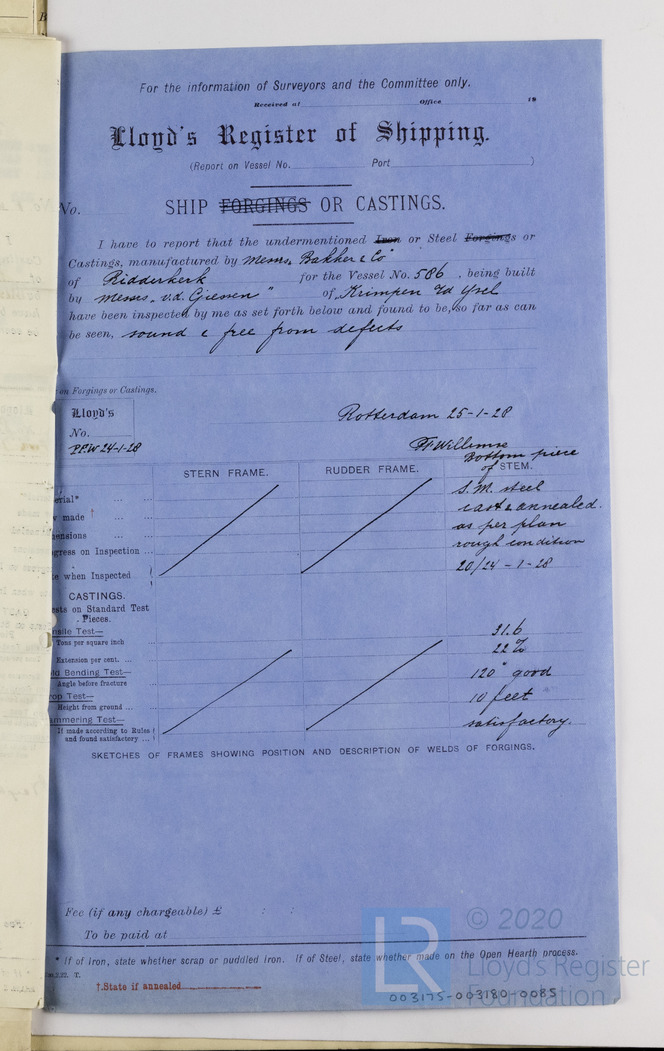 For the information of Surveyors and the Committee only.
Received at Office 19
Lloyd's Register of Shipping.
(Report on Vessel No. Port )
No. SHIP FORGINGS OR CASTINGS.
I have to report that the undermentioned Iron or Steel Forgings or
Castings, manufactured by Messrs Bakker & Co
of Ridderkerk for the Vessel No. 586, being built
by Messrs „v.d. Giessen" of Krimpen a/d Ysel
have been inspected by me as set forth below and found to be, so far as can
be seen, sound & free from defects
on Forgings or Castings.
Lloyd's
No.
P.P.W 24-1-28
Rotterdam 25-1-28
Willemse
Bottom piece
STERN FRAME. RUDDER FRAME. of STEM.
erial* S.M. steel
w made † cast & annealed.
ensions as per plan
gress on Inspection ... rough condition
e when Inspected 20/24-1-28
CASTINGS.
sts on Standard Test
Pieces.
nsile Test—
Tons per square inch 31.6
Extension per cent. ... 22%
ld Bending Test—
Angle before fracture 120° good
rop Test—
Height from ground ... 10 feet
mmering Test—
If made according to Rules
and found satisfactory ... satisfactory.
SKETCHES OF FRAMES SHOWING POSITION AND DESCRIPTION OF WELDS OF FORGINGS.
Fee (if any chargeable) £ : :
To be paid at
* If of Iron, state whether scrap or puddled Iron. If of Steel, state whether made on the Open Hearth process.
2.22. T.
†.State if annealed
LR
© 2020
Lloyd's Register
Foundation
003175-003180-0085